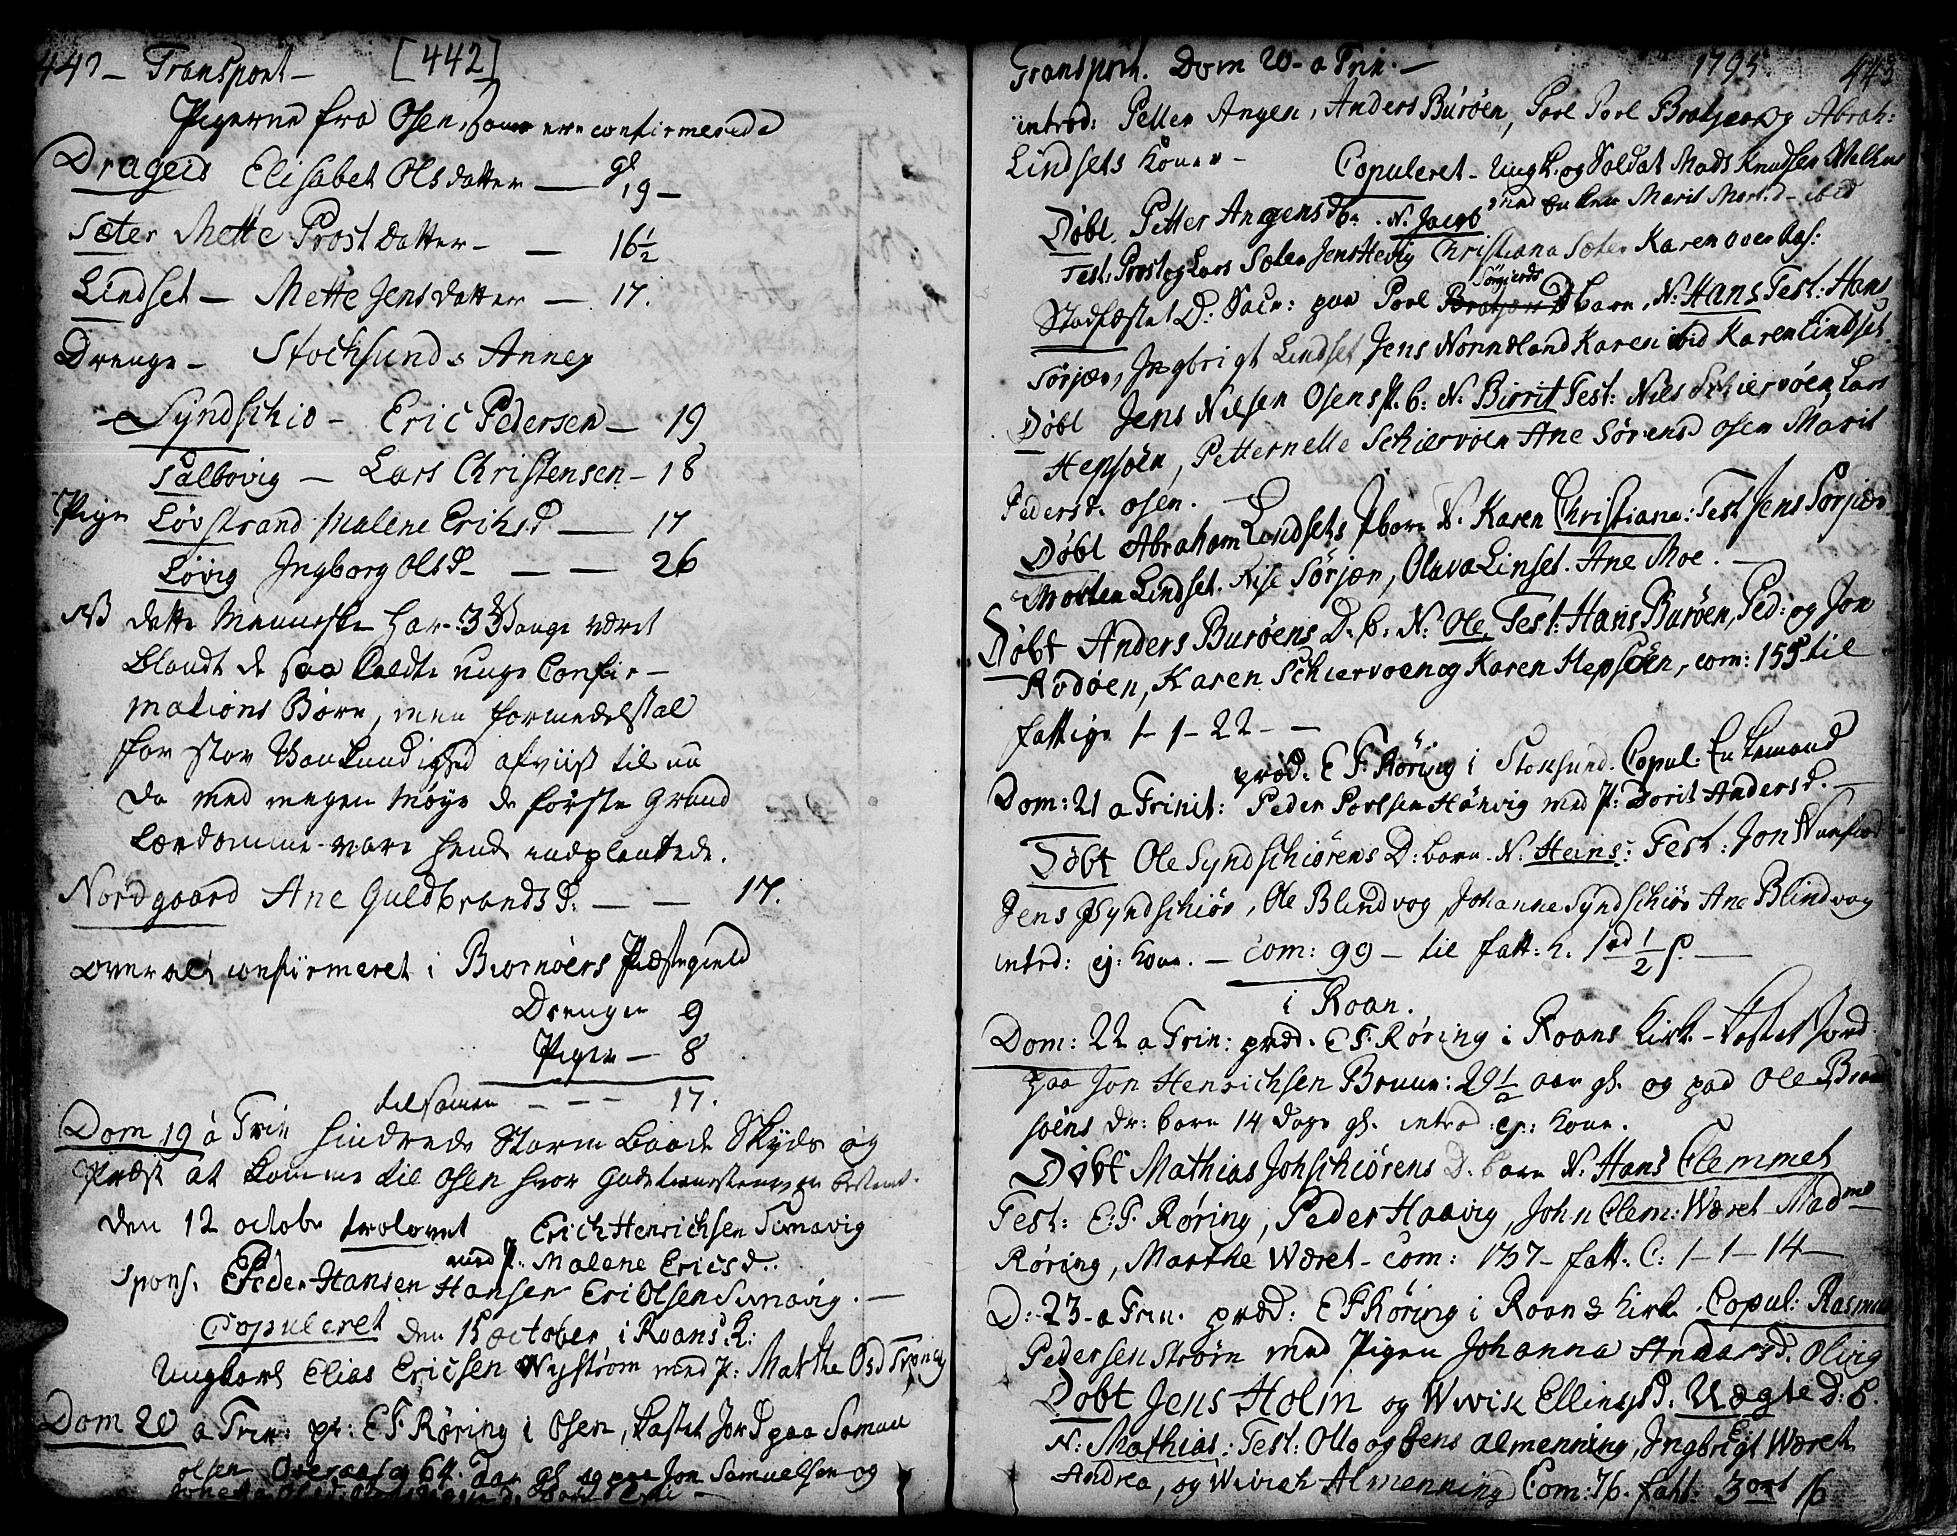 442 - Transport - [442]
Pigerne fra Osen, som ere confirmerede
Drageid Elisabet Olsdatter — gl 19 -
Sæter Mette Prost datter - — 16 1/2
Lindset - Mette Jens datter — 17.
Drenge - Stochsunds Annex
Syndschiø - Eric Pedersen - 19
Salbovig - Lars Christensen - 18
Pige Løvstrand Malene Eriks D — 17
Løvig Ingborg Ols D - — — 26
NB dette Menneske har 3 Gange været
blandt de saa kaldte unge Confir-
mations Børn, men formedelst al
for stor Vankundighed afviist til nu
da med megen møye de første Grund
Lærdomme vare hende indplantede.
Nordgaard Ane Guldbrands D. — — 17.
Overalt confirmeret i Biørnøers Præstegield
Drenge 9
Piger - 8
tilsamen - - - 17.
Dom 19 a Trin hindrede Storm baade Skyds og
Præst at komme til Osen hvor Gudstienesten var bestemt.
den 12 octobr trolovet Erich Henrichsen Sumavig
med P. Malene Erics d.
Spons. Peder Hansen Hansen Eri Olsen Sumavig. —
Copuleret den 15 october i Roans K:
Ungkarl Elias Ericsen Nystrøm med P: Marthe Osd
Dom 20 a Trin: pr: E F Røring i Osen, kastet Jord paa Samuel
olsen Overaas 64 aar gl. og paa Jon Samuelsen og
Transport. Dom 20 - a Trin. — 1795 443
introd: Petter Angen, Anders Burøen, Poel Poel og Abrah:
Lindsets Koner - Copuleret - Ungk. og Soldat Mads Knudsen
med Enken Marit Mort.d - ibid
Døbt. Petter Angens Db. N. Jacob
Test: Prost og Lars Sæter Jens Hevig Christiana Sæter Karen Overaas:
Sørjerds
Stadfæstet D: Sacr: paa Poel D barn, N: Hans Test: Hans
Sørjær, Ingbrigt Lindset Jens Nonndland Karen ibid Karen Lindset
Døbt Jens Nilsen Osens P. b: N. Birrit Test: Nils Schiervøen Lars
Hepsøen, Petternelle Schiervøen Ane Sørensd Osen Marit
Pedersd. Osen. —
Døbt Abraham Lindsets P barn N. Karen Christiana: Test Jens Sørjær
Morten Lindset. Sørjær, Olava Linset. Ane Moe. —
Døbt Anders Burøens D. b. N: Ole Test: Hans Burøen, Ped: og Jon
Ardøen, Karen Schiervoen og Karen Hepsøen, com: 155 til
fattige 1 - 1 - 22 - —
præd. E F Røring i Stoksund. Copul: Enkemand
Dom: 21 a Trinit: Peder Poelsen Hønvig med P: Dorit Anders d. —
Døbt Ole Syndschiørens D: barn. N: Heins: Test: Jon
Jens Syndschiør, Ole Blindvog, Johanne Syndschiør Ane Blindvog
introd: ej: Kone. — com: 99 - til fatt: —
i Roan.
Dom: 22 a Trin: præd. E F Røring i Roans Kirk - kastet Jord
paa Jon Henrichsen Bruun: 29 1/2 aar gl. og paa Ole
søens dr: barn 14 dage gl. introd ej: Kone.
Døbt Mathias Johschiørens D. barn N. Hans Clemmet
Test: E: F. Røring, Peder Haavig, John Clem: Wæret Mad me
Røring, Marthe Wæret - com: 137 - fatt: C: 1 - 1 - 14 —
D: 23 - a Trin. præd: E F Røring i Roans Kirk. Copul: Rasmus
Pedersen Strøm med Pigen Johanna Andersd. Olivig
Døbt Jens Holm og Wivik Ellings D. Uægte D: b.
N: Mathias: Test: Otto og Jens Almenning, Ingbrigt Wæret
Andrea, og Wivich Almenning Com: 76. fatt: 3 ort 16